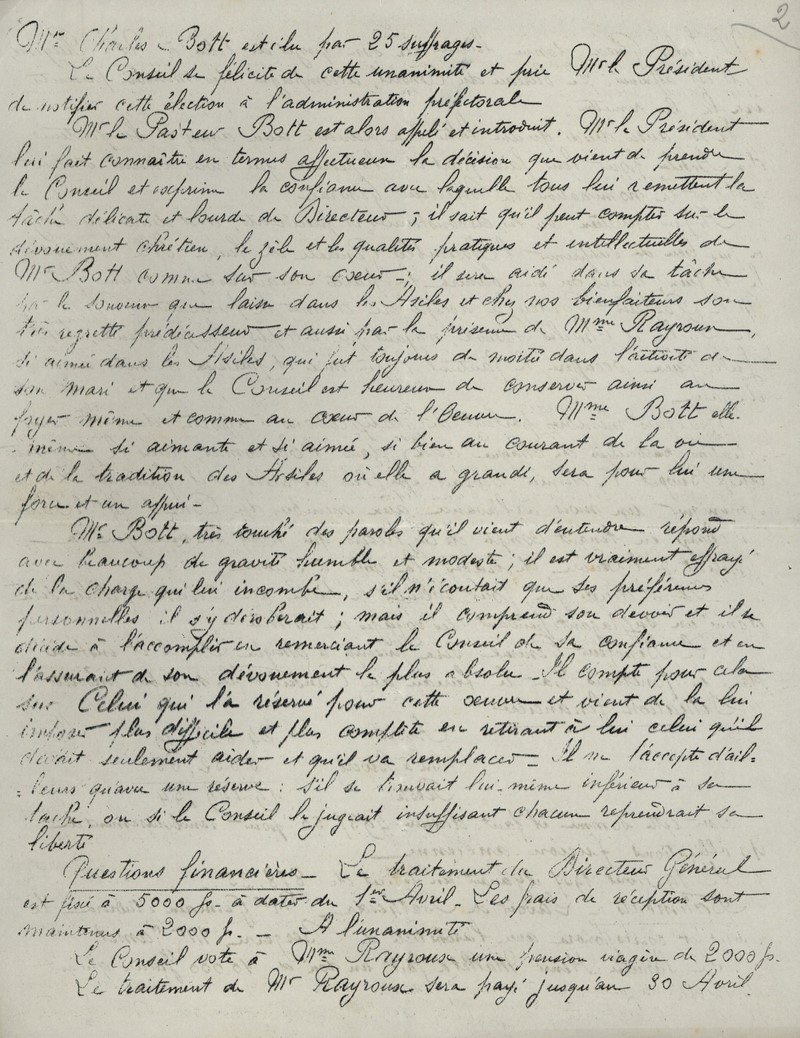 2
Mr Charles Bott est élu par 25 suffrages -
Le Conseil se félicite de cette unanimité et prie Mr le Président
de notifier cette élection à l'administration préfectorale
Mr le Pasteur Bott est alors appelé et introduit. Mr le Président
lui fait connaître en termes affectueux la décision que vient de prendre
le Conseil et exprime la confiance avec laquelle tous lui remettent la
tâche délicate et lourde de Directeur ; il sait qu'il peut compter sur le
dévouement chrétien, le zèle et les qualités pratiques et intellectuelles de
Mr Bott comme sur son coeur - ; il sera aidé dans sa tâche
par le souvenir que laisse dans les Asiles et chez nos bienfaiteurs son
très regretté prédécesseur et aussi par la présence de Mme Rayroux,
si aimée dans les Asiles, qui fut toujours de moitié dans l'activité de
son mari et que le Conseil est heureux de conserver ainsi au
foyer même et comme au coeur de l'Oeuvre. Mme Bott elle-
-même si aimante et si aimée, si bien au courant de la vie
et de la tradition des Asiles où elle a grandi, sera pour lui une
force et un appui -
Mr Bott, très touché des paroles qu'il vient d'entendre répond
avec beaucoup de gravité humble et modeste ; il est vraiment effrayé
de la charge qui lui incombe, s'il n'écoutait que ses préférences
personnelles il s'y déroberait ; mais il comprend son devoir et il se
décide à l'accomplir en remerciant le Conseil de sa confiance et en
l'assurant de son dévouement le plus absolu - Il compte pour cela
sur Celui qui l'a réservé pour cette oeuvre et vient de la lui
imposer plus difficile et plus complète en retirant à lui celui qu'il
devait seulement aider et qu'il va remplacer - Il ne l'accepte d'ail-
-leurs qu'avec une réserve : s'il se trouvait lui-même inférieur à sa
tâche, ou si le Conseil le jugeait insuffisant chacun reprendrait sa
liberté
Questions financières - Le traitement du Directeur Général
est fixé à 5000 fr. à dater du 1er Avril - Les frais de réception sont
maintenus à 2000 fr. - A l'unanimité
Le Conseil vote à Mme Rayroux une pension viagère de 2000 fr.
Le traitement de Mr Rayroux sera payé jusqu'au 30 Avril